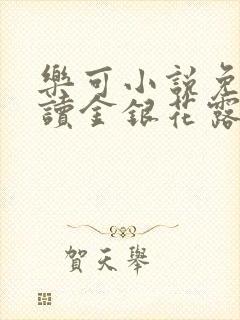 樂可小說免
讀金銀花露
賀天舉